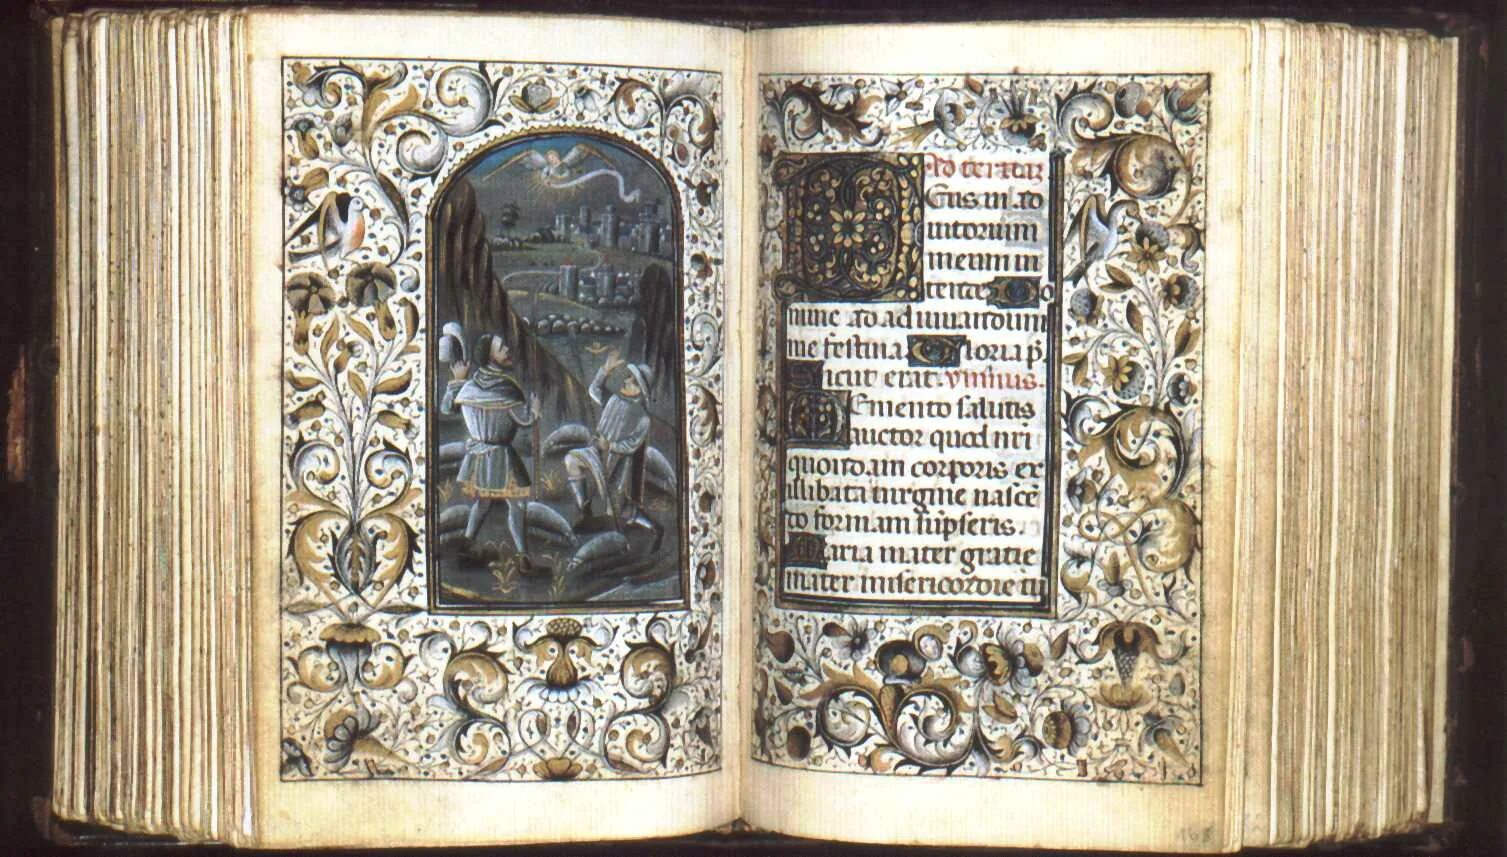 Ad terciaz
Eus in ad
iutorium
meum in
tende Do
mine ad adiuuandum
me festina Gloria p
Sicut erat. ympnus.
Memento salutis
auctor quod nri
quondam corporis ex
illibata uirgine nasce
do formam sumpseris.
Maria mater gratie
mater misericordie tu